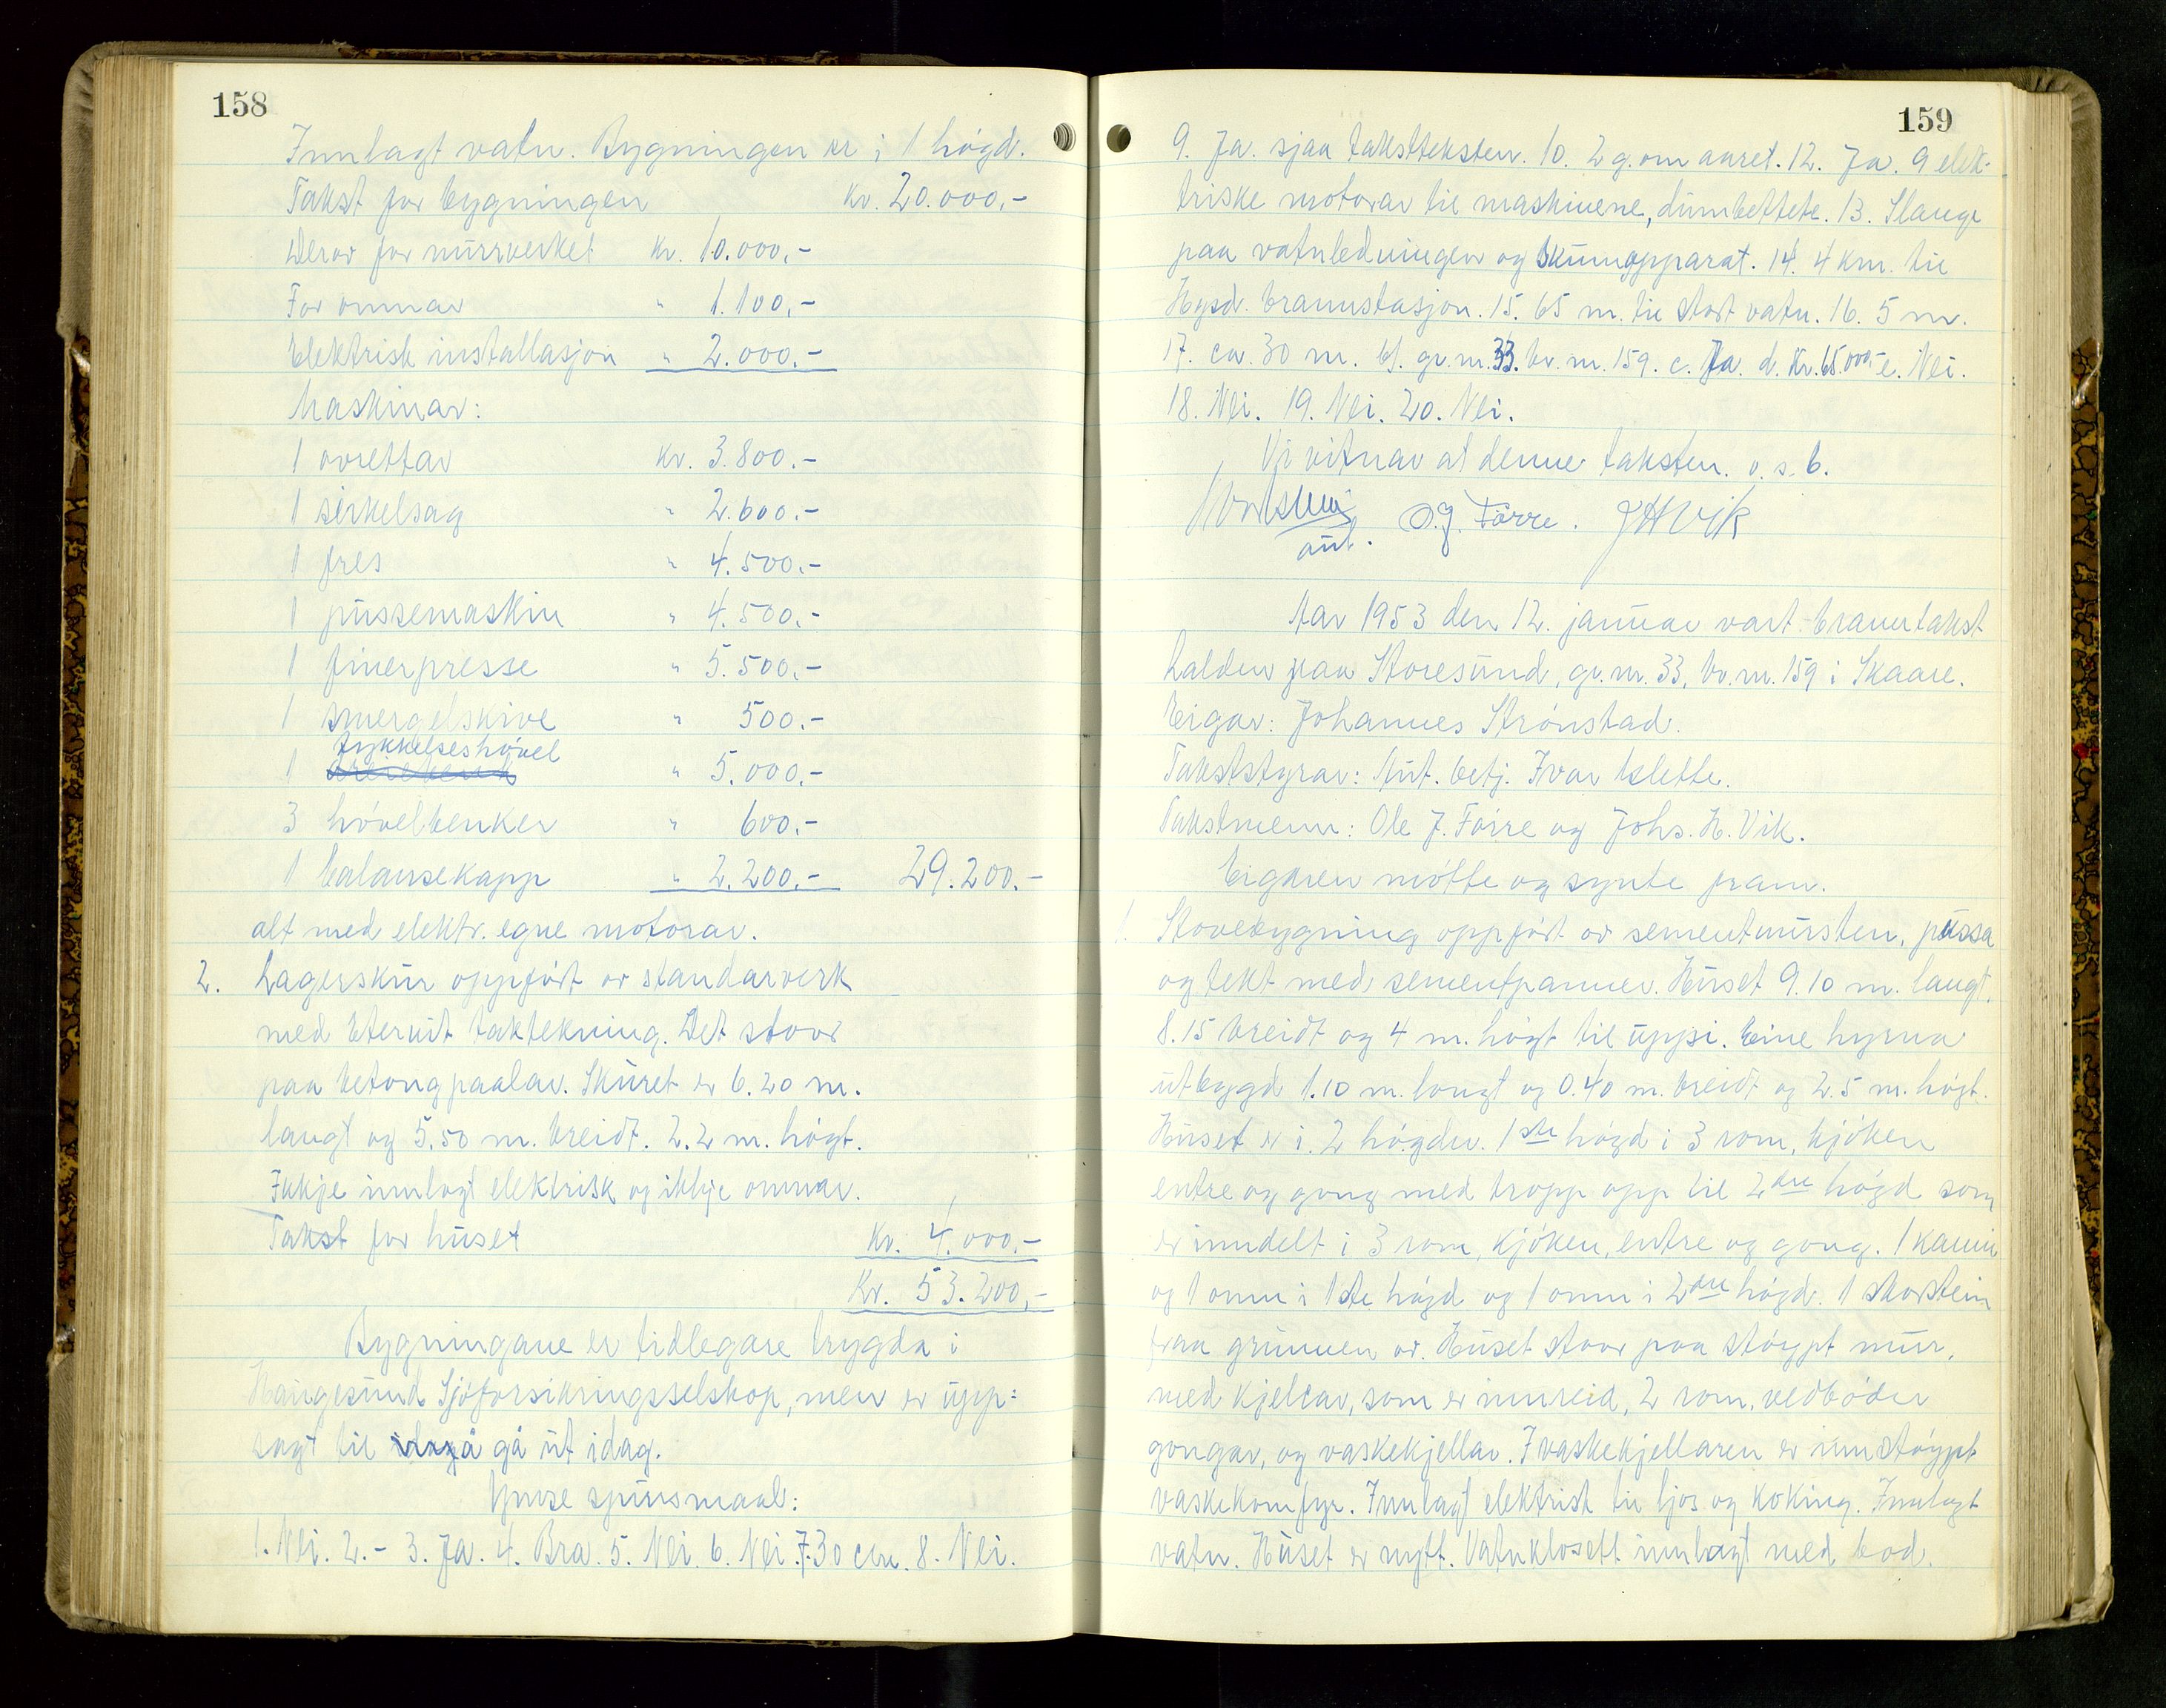 158
Innlagt vatn. Bygningen er i 1 høgd.
Takst for bygningen kr. 20.000.-
Derav for murverket kr. 10.000,-
For omnar " 1.100,-
Elektrisk installasjon " 2.000.-
Maskinar:
1 avrettar kr. 3.800.-
1 sirkelsag " 2.600.-
1 fres " 4.500.-
1 pussemaskin " 4.500.-
1 finerpresse " 5.500.-
1 smergelskive " 500.-
tykkelseshøvel
1 " 5.000.-
3 høvelbenker " 600.-
1 balansekapp " 2.200.- 29.200.-
alt med elektr. egne motorar.
2. Lagerskur oppført av standarverk
med Eternit taktekning. Det stoor
paa betongpaalar. Skuret er 6.20 m.
langt og 5.50 m. breidt. 2.2 m. høgt.
Ikkje innlagt elektrisk og ikkje omnar.
Takst for huset kr. 4.000.-
Kr. 53.200,-
Bygningane er tidlegare trygda i
Haugesund Sjøforsikringsselskap, men er upp-
sagt til å gå ut idag.
Ymse spursmaal:
1. Nei. 2.- 3. Ja. 4. Bra. 5. Nei. 6. Nei. 7. 30 cm. 8. Nei.
159
9. Ja. sjaa takstteksten. 10. 2 g. om aaret. 12. Ja. 9 elek-
triske motorar til maskinene, dimbettete. 13. Slange
paa vatnledningen og skumapparat. 14. 4 km. til
Hgsd. brannstasjon. 15. 65 m. til stort vatn. 16. 5 m.
17. ca. 30 m. b. gr. nr. 33. br. nr. 159. c. Ja. d. kr. 65.000,- e. Nei.
18. Nei. 19. Nei. 20. Nei.
Vi vitnar at denne taksten o. s. b.
O. J. Førre. J H Vik
aut.
Aar 1953 den 12. januar vart branntakst
halden paa Storesund, gr. nr. 33, br. nr. 159 i Skaare.
Eigar: Johannes Strønstad.
Takststyrar: Aut. betj. Ivar Klette.
Takstmenn: Ole J. Førre og Johs. H. Vik.
Eigaren møtte og synte fram.
1. Stovebygning oppført av sementmursten, pussa
og tekt med sementpanner. Huset 9.10 m. langt,
8.15 breidt og 4 m. høgt til uppsi. Eine hyrna
utbygd 1.10 m. langt og 0.40 m. breidt og 2.5 m. høgt.
Huset er i. 2 høgder. 1ste høgd i 3 rom, kjøken
entre og gong med tropp opp til 2dre høgd som
er inndelt i 3 rom, kjøken, entre og gong. 1 kamin
og 1 omn i 1ste høgd og 1 omn i 2dre høgd. 1 skorstein
fraa grunnen av. Huset stoor paa støypt mur,
med kjellar, som er innreid, 2 rom, vedboder
gongar, og vaskekjellar. I vaskekjellaren er innstøypt
vaskekomfyr. Innlagt elektrisk til ljos og koking. Innlagt
vatn. Huset er nytt. Vatnklosett innlagt med bad.